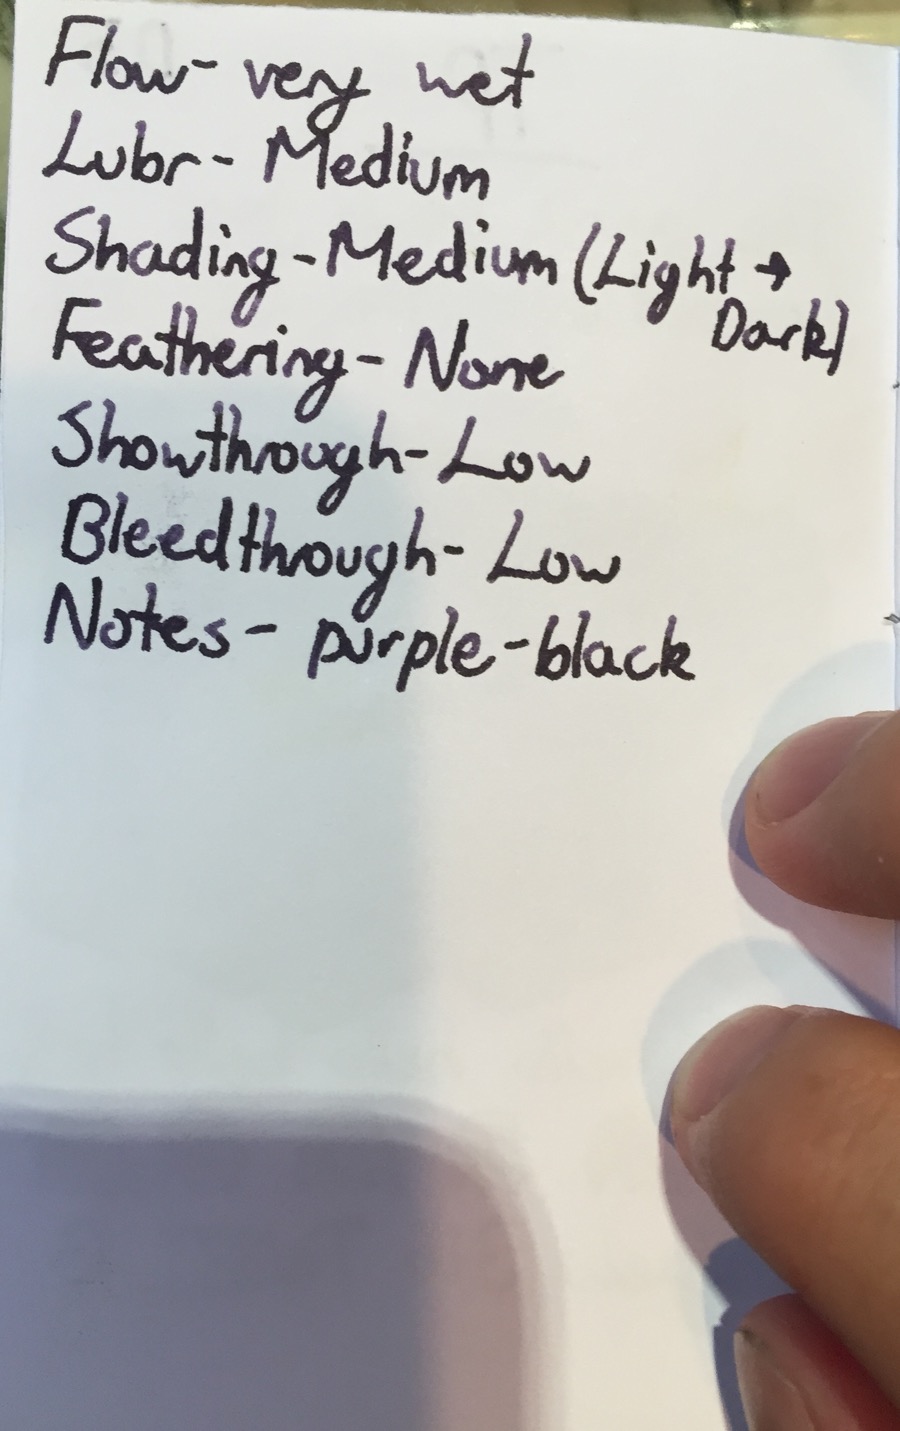 Flow- very wet
Lubr- Medium
Shading-Medium (Light →
Dark)
Feathering- None
Showthrough- Low
Bleedthrough- Low
Notes- purple-black